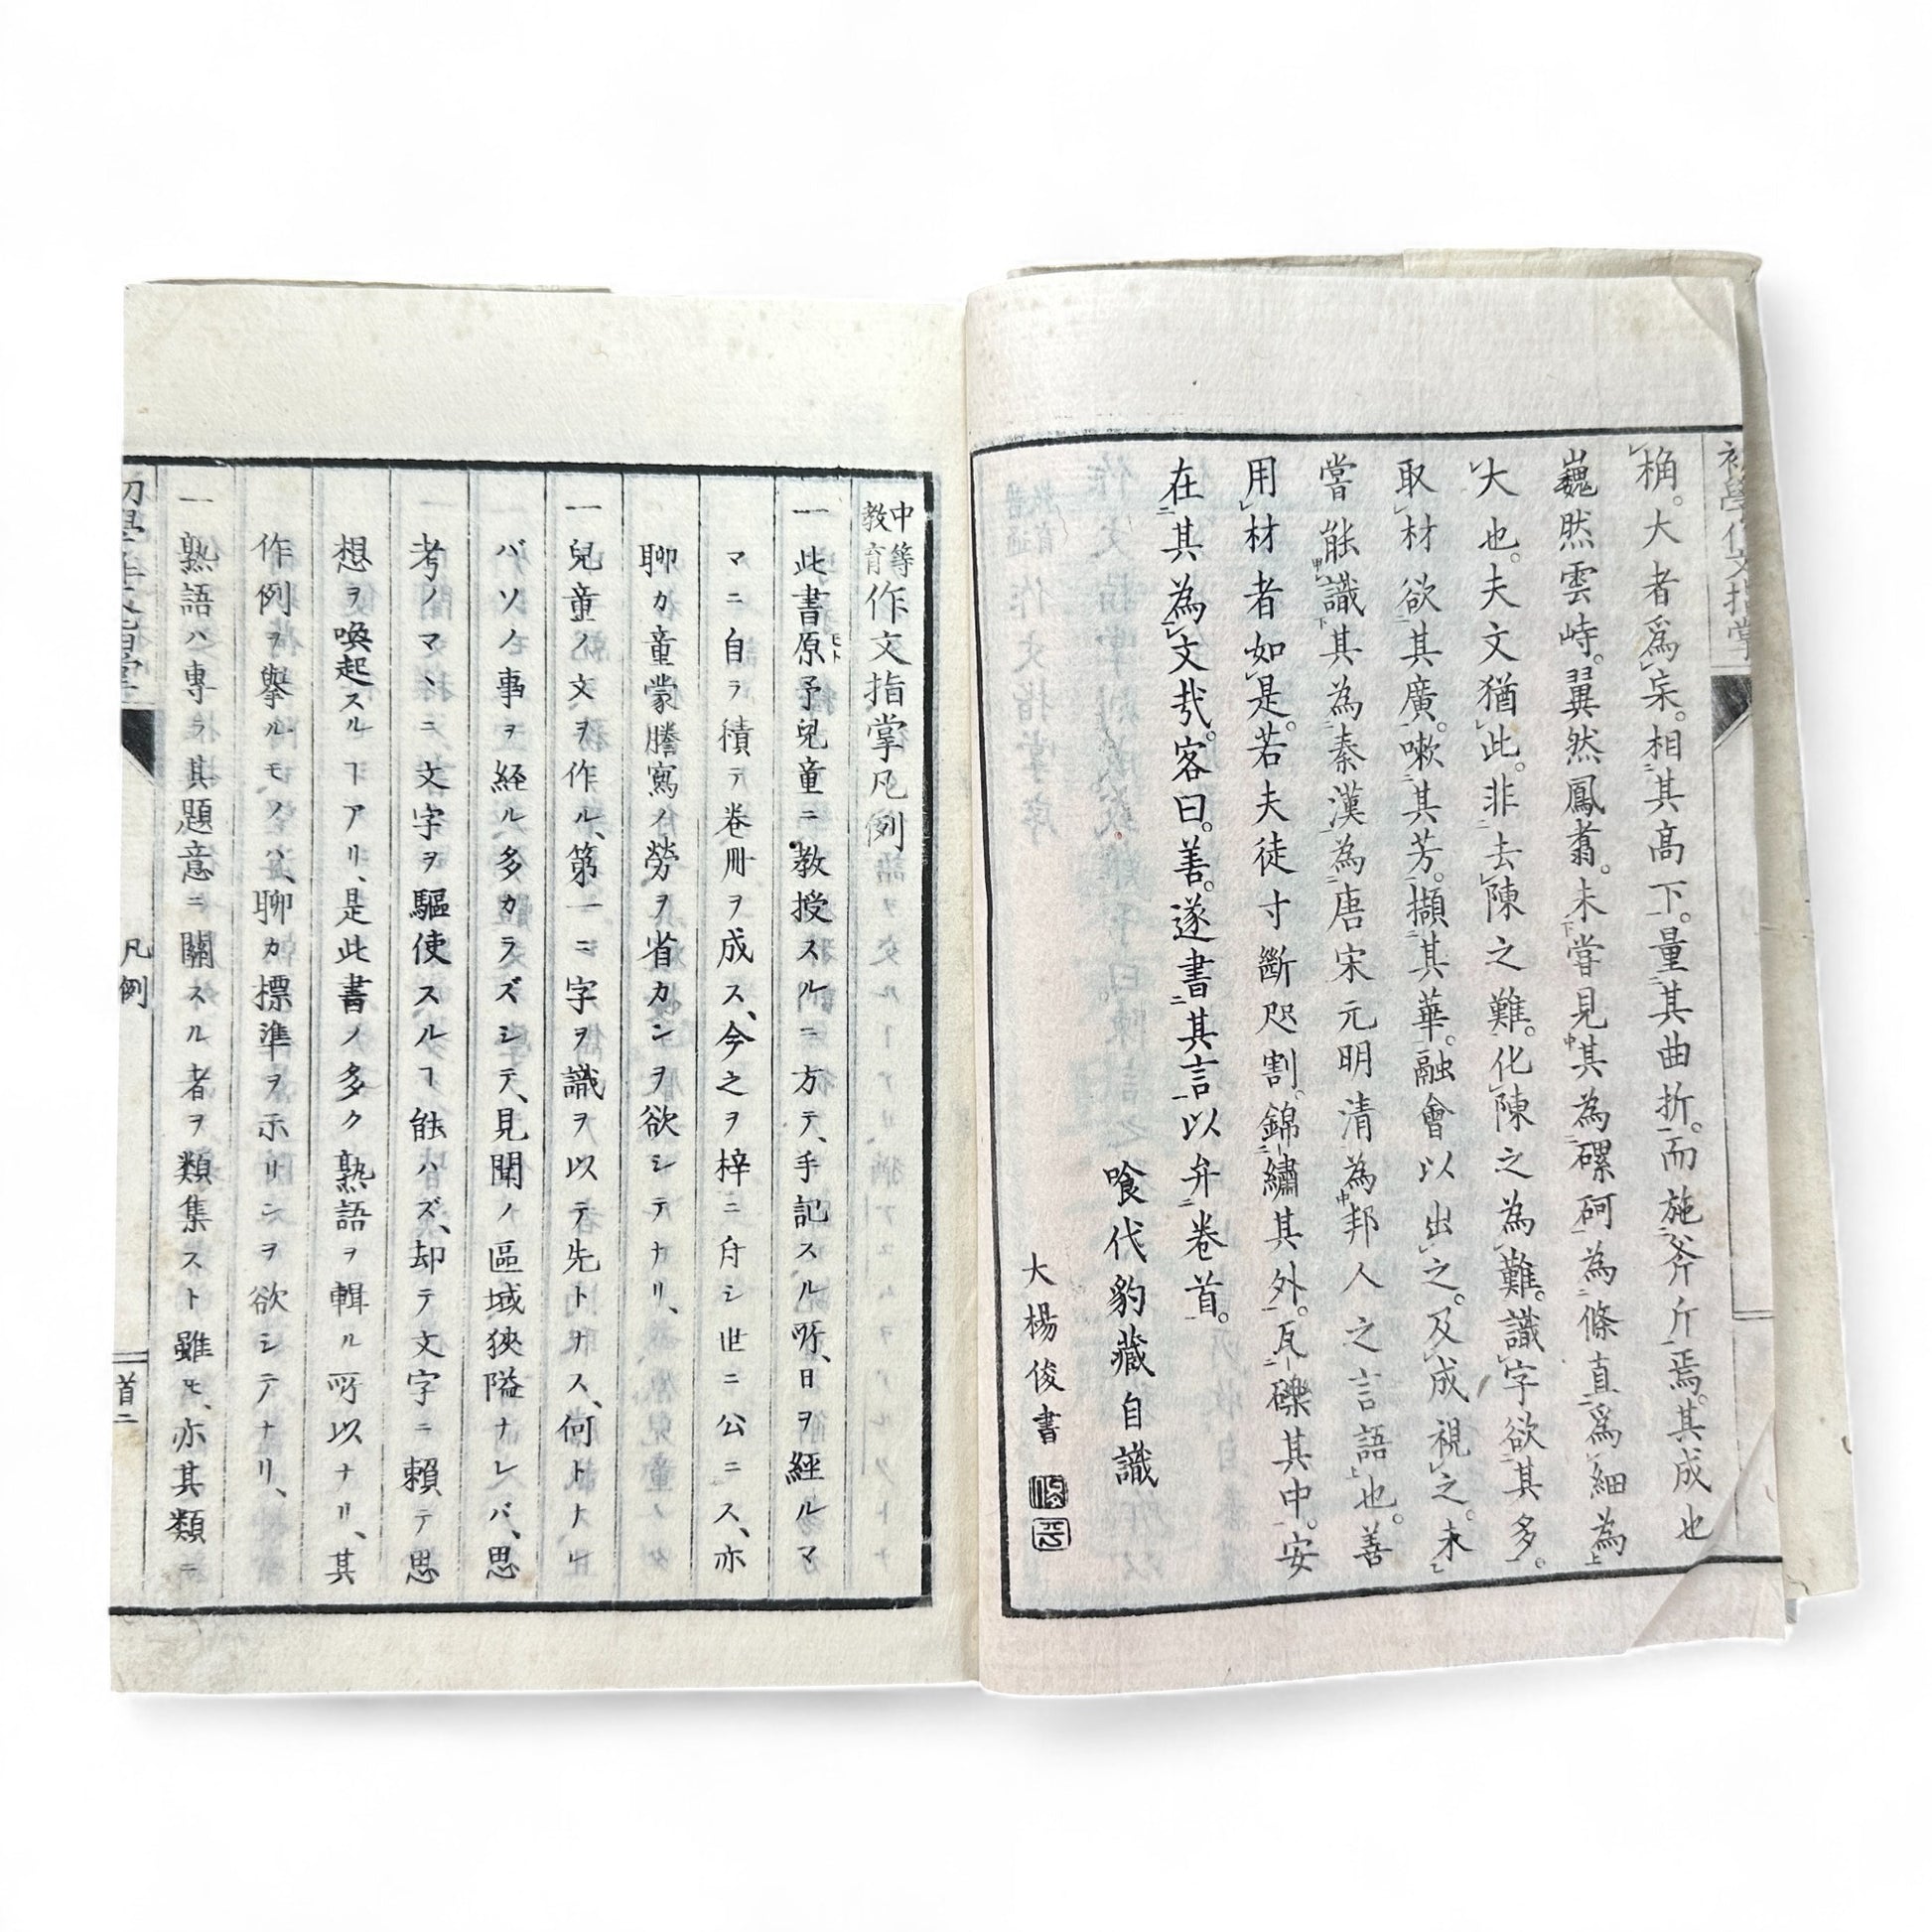 桷。大者爲宋。相其高下。量其曲折。而施斧斤焉。其成也
巍然雲峙。翼然鳳翥。未嘗見其為磥砢為條直爲細為
大也。夫文猶此。非去陳之難。化陳之為難。識字欲其多。
取材欲其廣。嗽其芳。擷其華。融會以出之。及成視之。未
嘗能識其為秦漢為唐宋元明清為邦人之言語也。善
用材者如是。若夫徒寸斷咫割。錦繡其外。瓦礫其中。安
在其為文哉。客曰。善。遂書其言以弁卷首。
喰代豹藏自識
大楊俊書
中等教育作文指掌凡例
一此書原予兒童ニ教授スルニ方テ、手記スル所、日ヲ經ルマ
マニ自ラ積テ卷冊ヲ成ス、今之ヲ梓ニ付シ世ニ公ニス、亦
聊カ童蒙謄寫ノ勞ヲ省カンヲ欲シテナリ、
一兒童ノ文ヲ作ル、第一ニ字ヲ識ヲ以テ先トナス、何トナレ
バソノ事ヲ経ル多カラズシテ、見聞ノ區域狹隘ナレバ、思
考ノマヽニ文字ヲ驅使スルヿ能ハズ、却テ文字ニ賴テ思
想ヲ喚起スルヿアリ、是此書ノ多ク熟語ヲ輯ル所以ナリ、其
作例ヲ擧ルモノハ、聊カ標準ヲ示リンヲ欲シテナリ、
一熟語ハ專ラ其題意ニ關スル者ヲ類集スト雖𪜈、亦其類ニ
初學作文指掌
凡例
首二